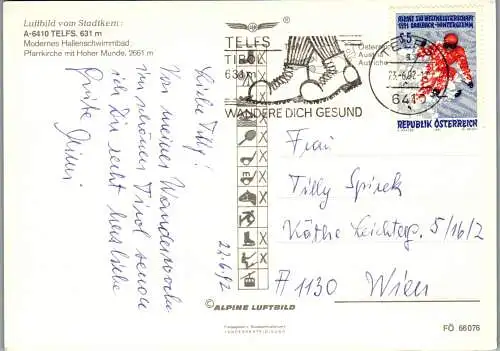 Luftbild vom Stadtkern:
A-6410 TELFS. 631 m
Modernes Hallenschwimmbad
Pfarrkirche mit Hoher Munde, 2661 m
Liebe Tilly!
Von meiner Wanderwoche
im schönen Tirol sende
ich Dir recht herzliche
Grüße
22.6.92
TELFS
TIROL
631 m
Österreich
Austria
Autriche
WANDERE DICH GESUND
23.-6.92
6410
ALPINE SKI WELTMEISTERSCHAFT
1991 SAALBACH-HINTERGLEMM
S 5
REPUBLIK ÖSTERREICH
Frau
Tilly
Käthe Leichterg. 5/16/2
A 1130 Wien
© ALPINE LUFTBILD
FÖ 66076